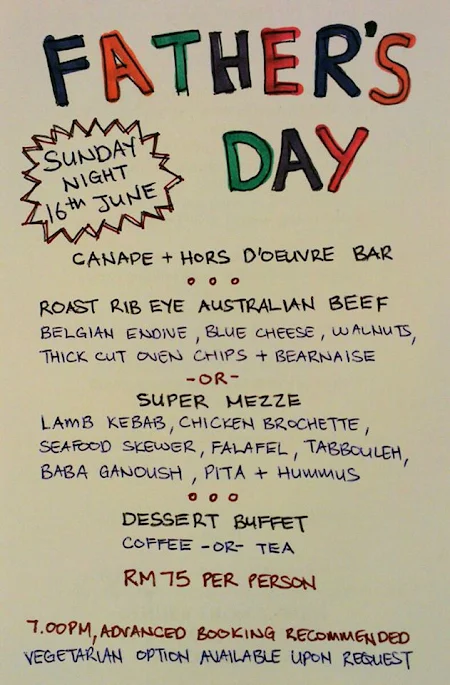 FATHER'S
DAY
SUNDAY
NIGHT
16th JUNE
CANAPE + HORS D'OEUVRE BAR
ROAST RIB EYE AUSTRALIAN BEEF
BELGIAN ENDIVE, BLUE CHEESE, WALNUTS,
THICK CUT OVEN CHIPS + BEARNAISE
-OR-
SUPER MEZZE
LAMB KEBAB, CHICKEN BROCHETTE,
SEAFOOD SKEWER, FALAFEL, TABBOULEH,
BABA GANOUSH, PITA + HUMMUS
DESSERT BUFFET
COFFEE -OR- TEA
RM75 PER PERSON
7.00PM, ADVANCED BOOKING RECOMMENDED
VEGETARIAN OPTION AVAILABLE UPON REQUEST